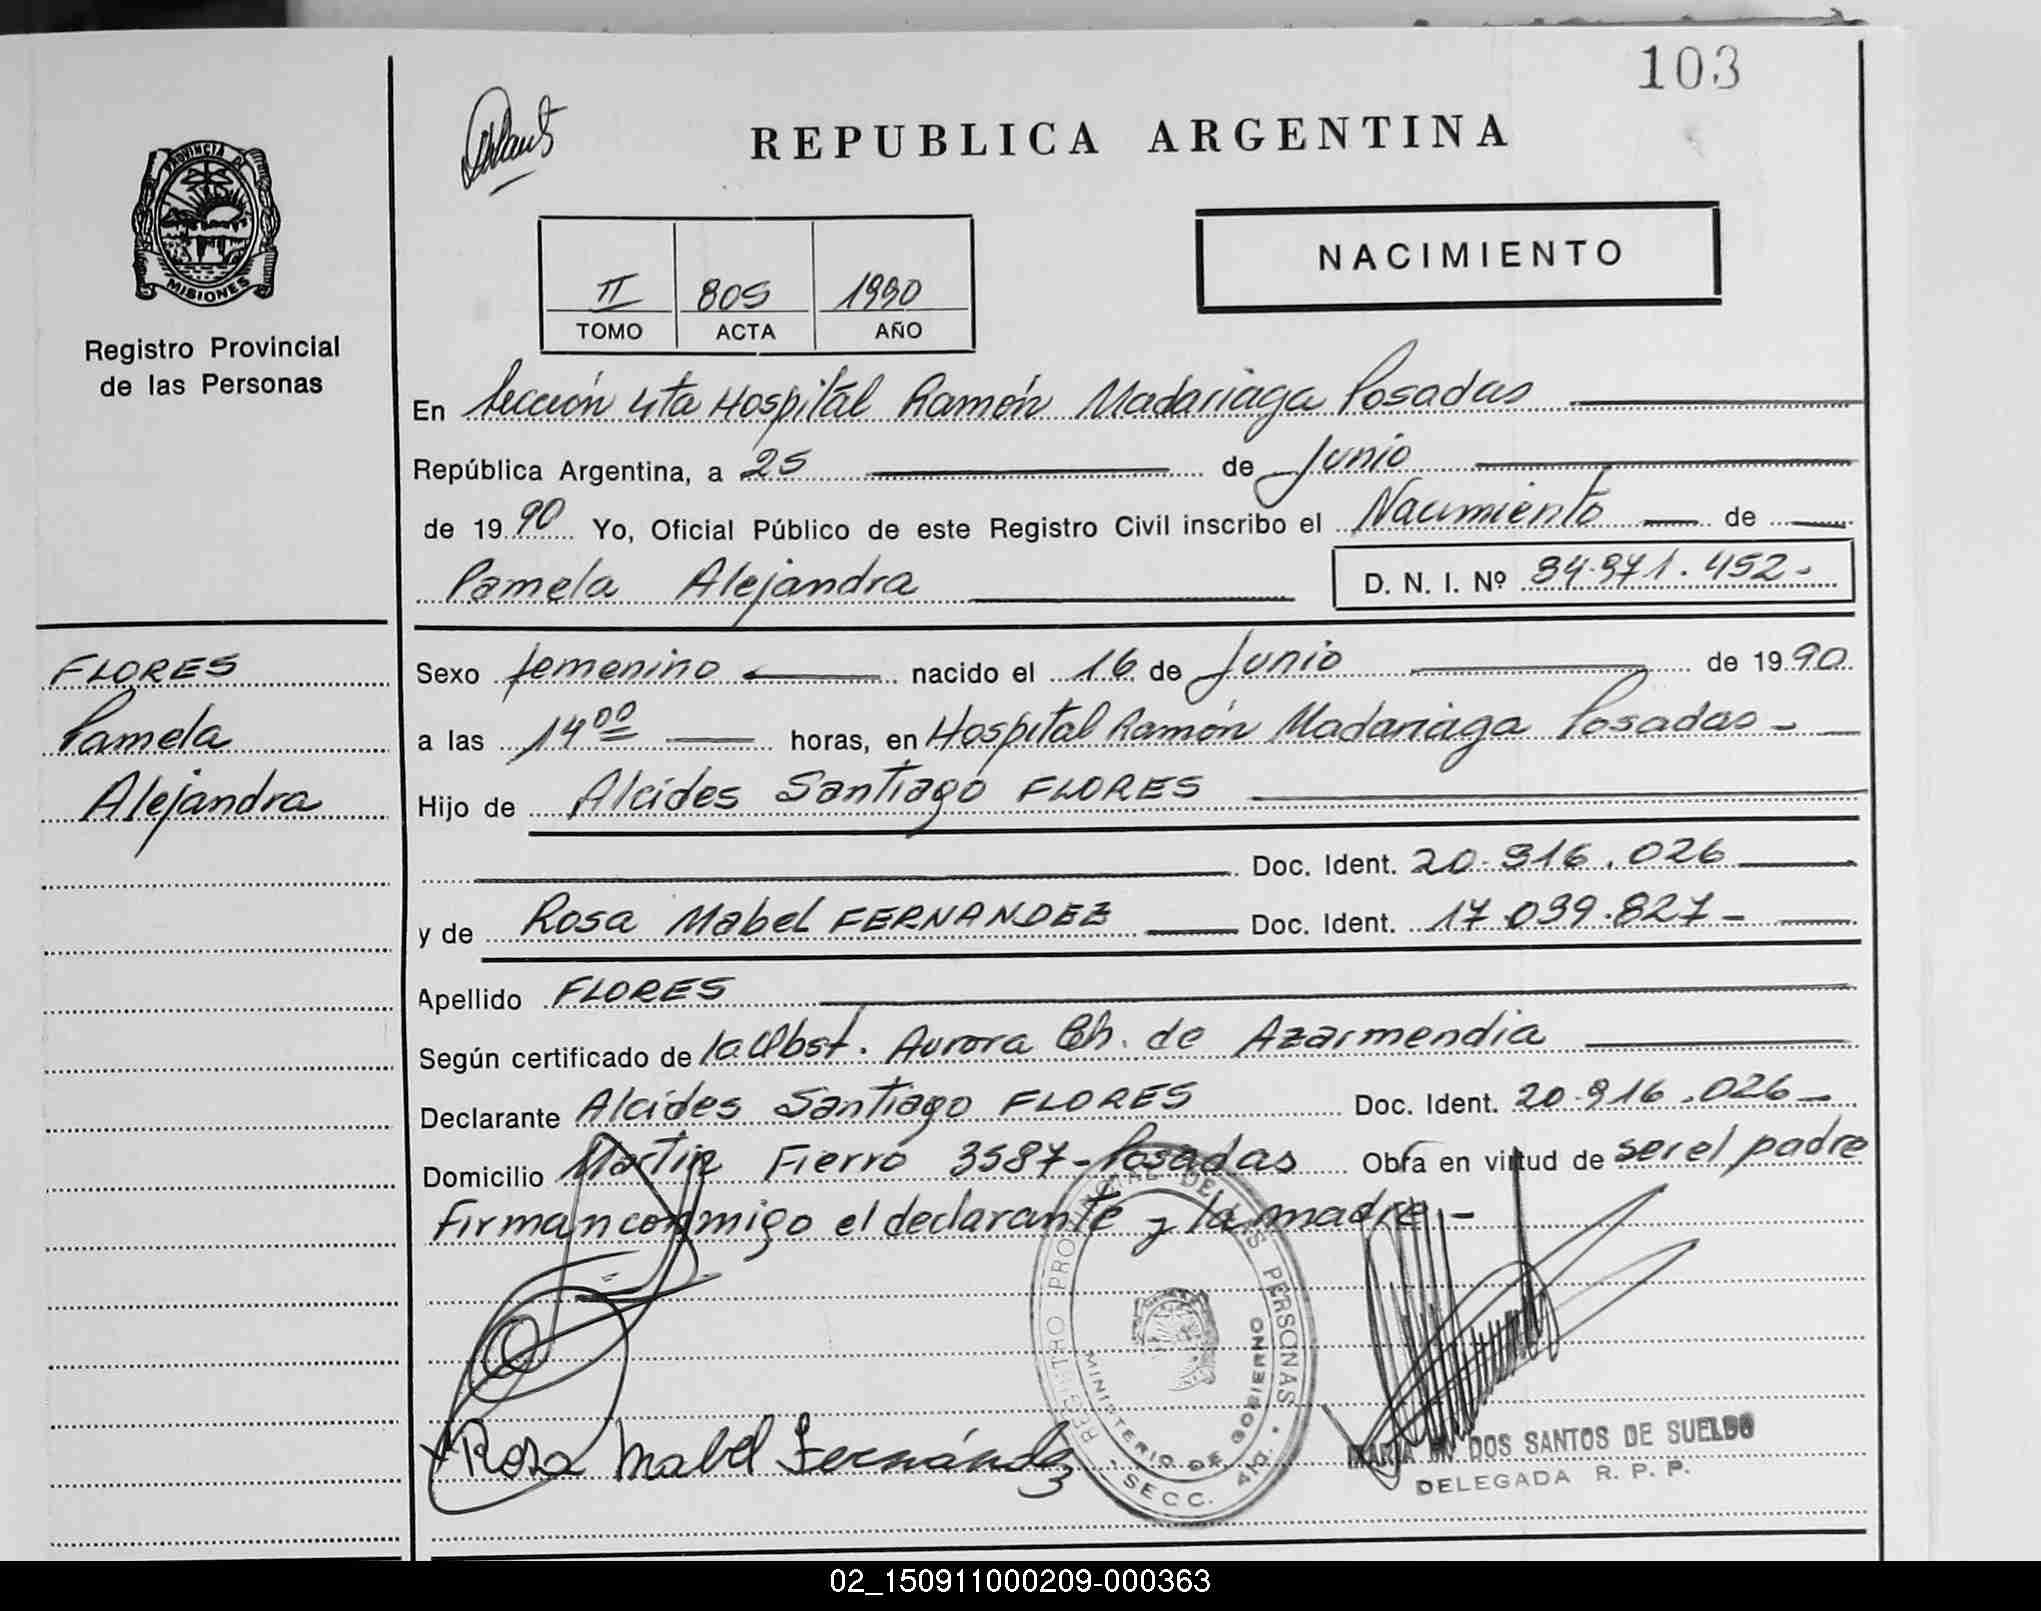 103
REPUBLICA ARGENTINA
PROVINCIA DE
MISIONES
Registro Provincial
de las Personas
NACIMIENTO
II 805 1990
TOMO ACTA AÑO
En Sección 4ta Hospital Ramón Madariaga Posadas
República Argentina, a 25 de Junio
de 1990 Yo, Oficial Público de este Registro Civil inscribo el Nacimiento de
Pamela Alejandra D. N. I. Nº 34.971.452-
FLORES
Pamela
Alejandra
Sexo femenino nacido el 16 de Junio de 1990
a las 14 00 horas, en Hospital Ramón Madariaga Posadas-
Hijo de Alcides Santiago FLORES
Doc. Ident. 20.916.026
y de Rosa Mabel FERNANDEZ Doc. Ident. 17.039.827-
Apellido FLORES
Según certificado de la Obst. Aurora Ch. de Azarmendia
Declarante Alcides Santiago FLORES Doc. Ident. 20.916.026-
Domicilio Martin Fierro 3587-Posadas Obra en virtud de ser el padre
Firman conmigo el declarante y la madre.-
REGISTRO PROVINCIAL DE LAS PERSONAS
MINISTERIO DE GOBIERNO
SECC. 4ta.
Rosa Mabel Fernández
MARIA DOS SANTOS DE SUELDO
DELEGADA R. P. P.
02_150911000209-000363